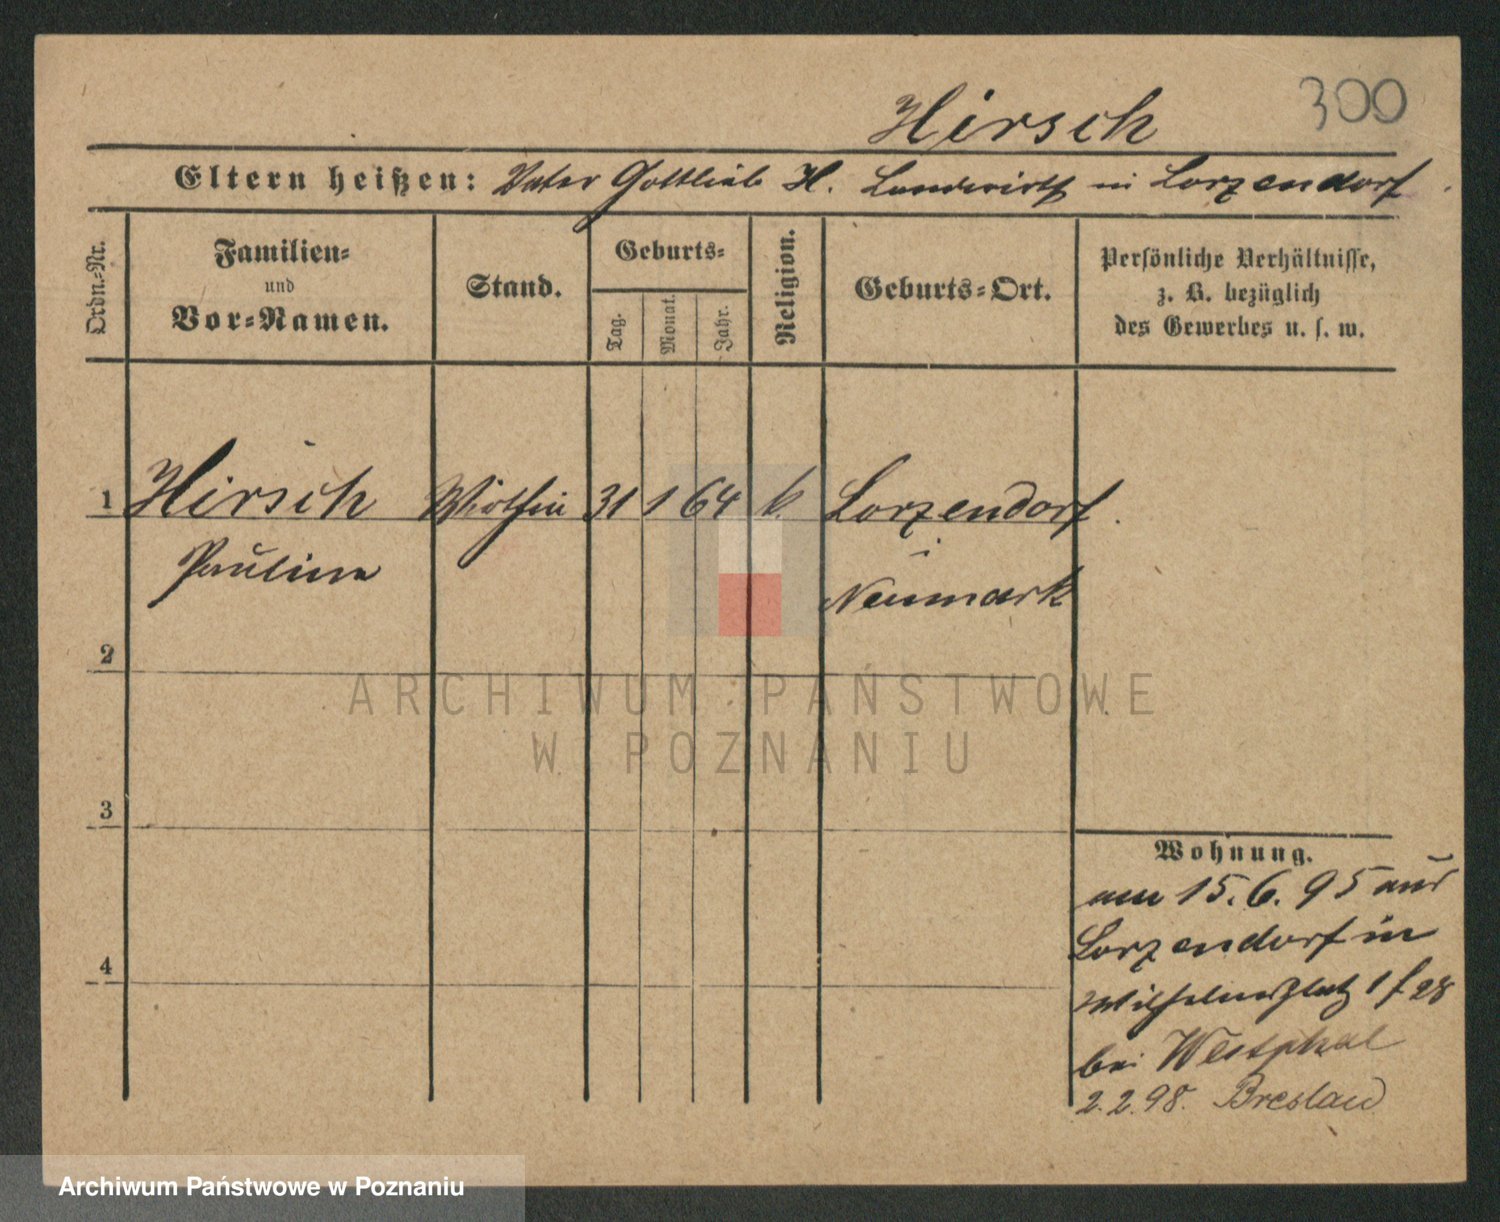 300
Hirsch
Eltern heißen: Vater Gottlieb H. Landwirth in Lorzendorf.
Ordn.-Nr.
Familien-
und
Vor-Namen.
Stand.
Geburts-
Tag.
Monat.
Jahr.
Religion.
Geburts-Ort.
Persönliche Verhältnisse,
z. B. bezüglich
des Gewerbes u. s. w.
1 Hirsch Wirthin 31 1 64 k. Lorzendorf.
Pauline
Neumark
2
ARCHIWUM PAŃSTWOWE
W POZNANIU
3
4
Wohnung.
am 15.6.95 aus
Lorzendorf in
Wilhelmsplatz 1
bei Westphal
2.2.98. Breslau
Archiwum Państwowe w Poznaniu